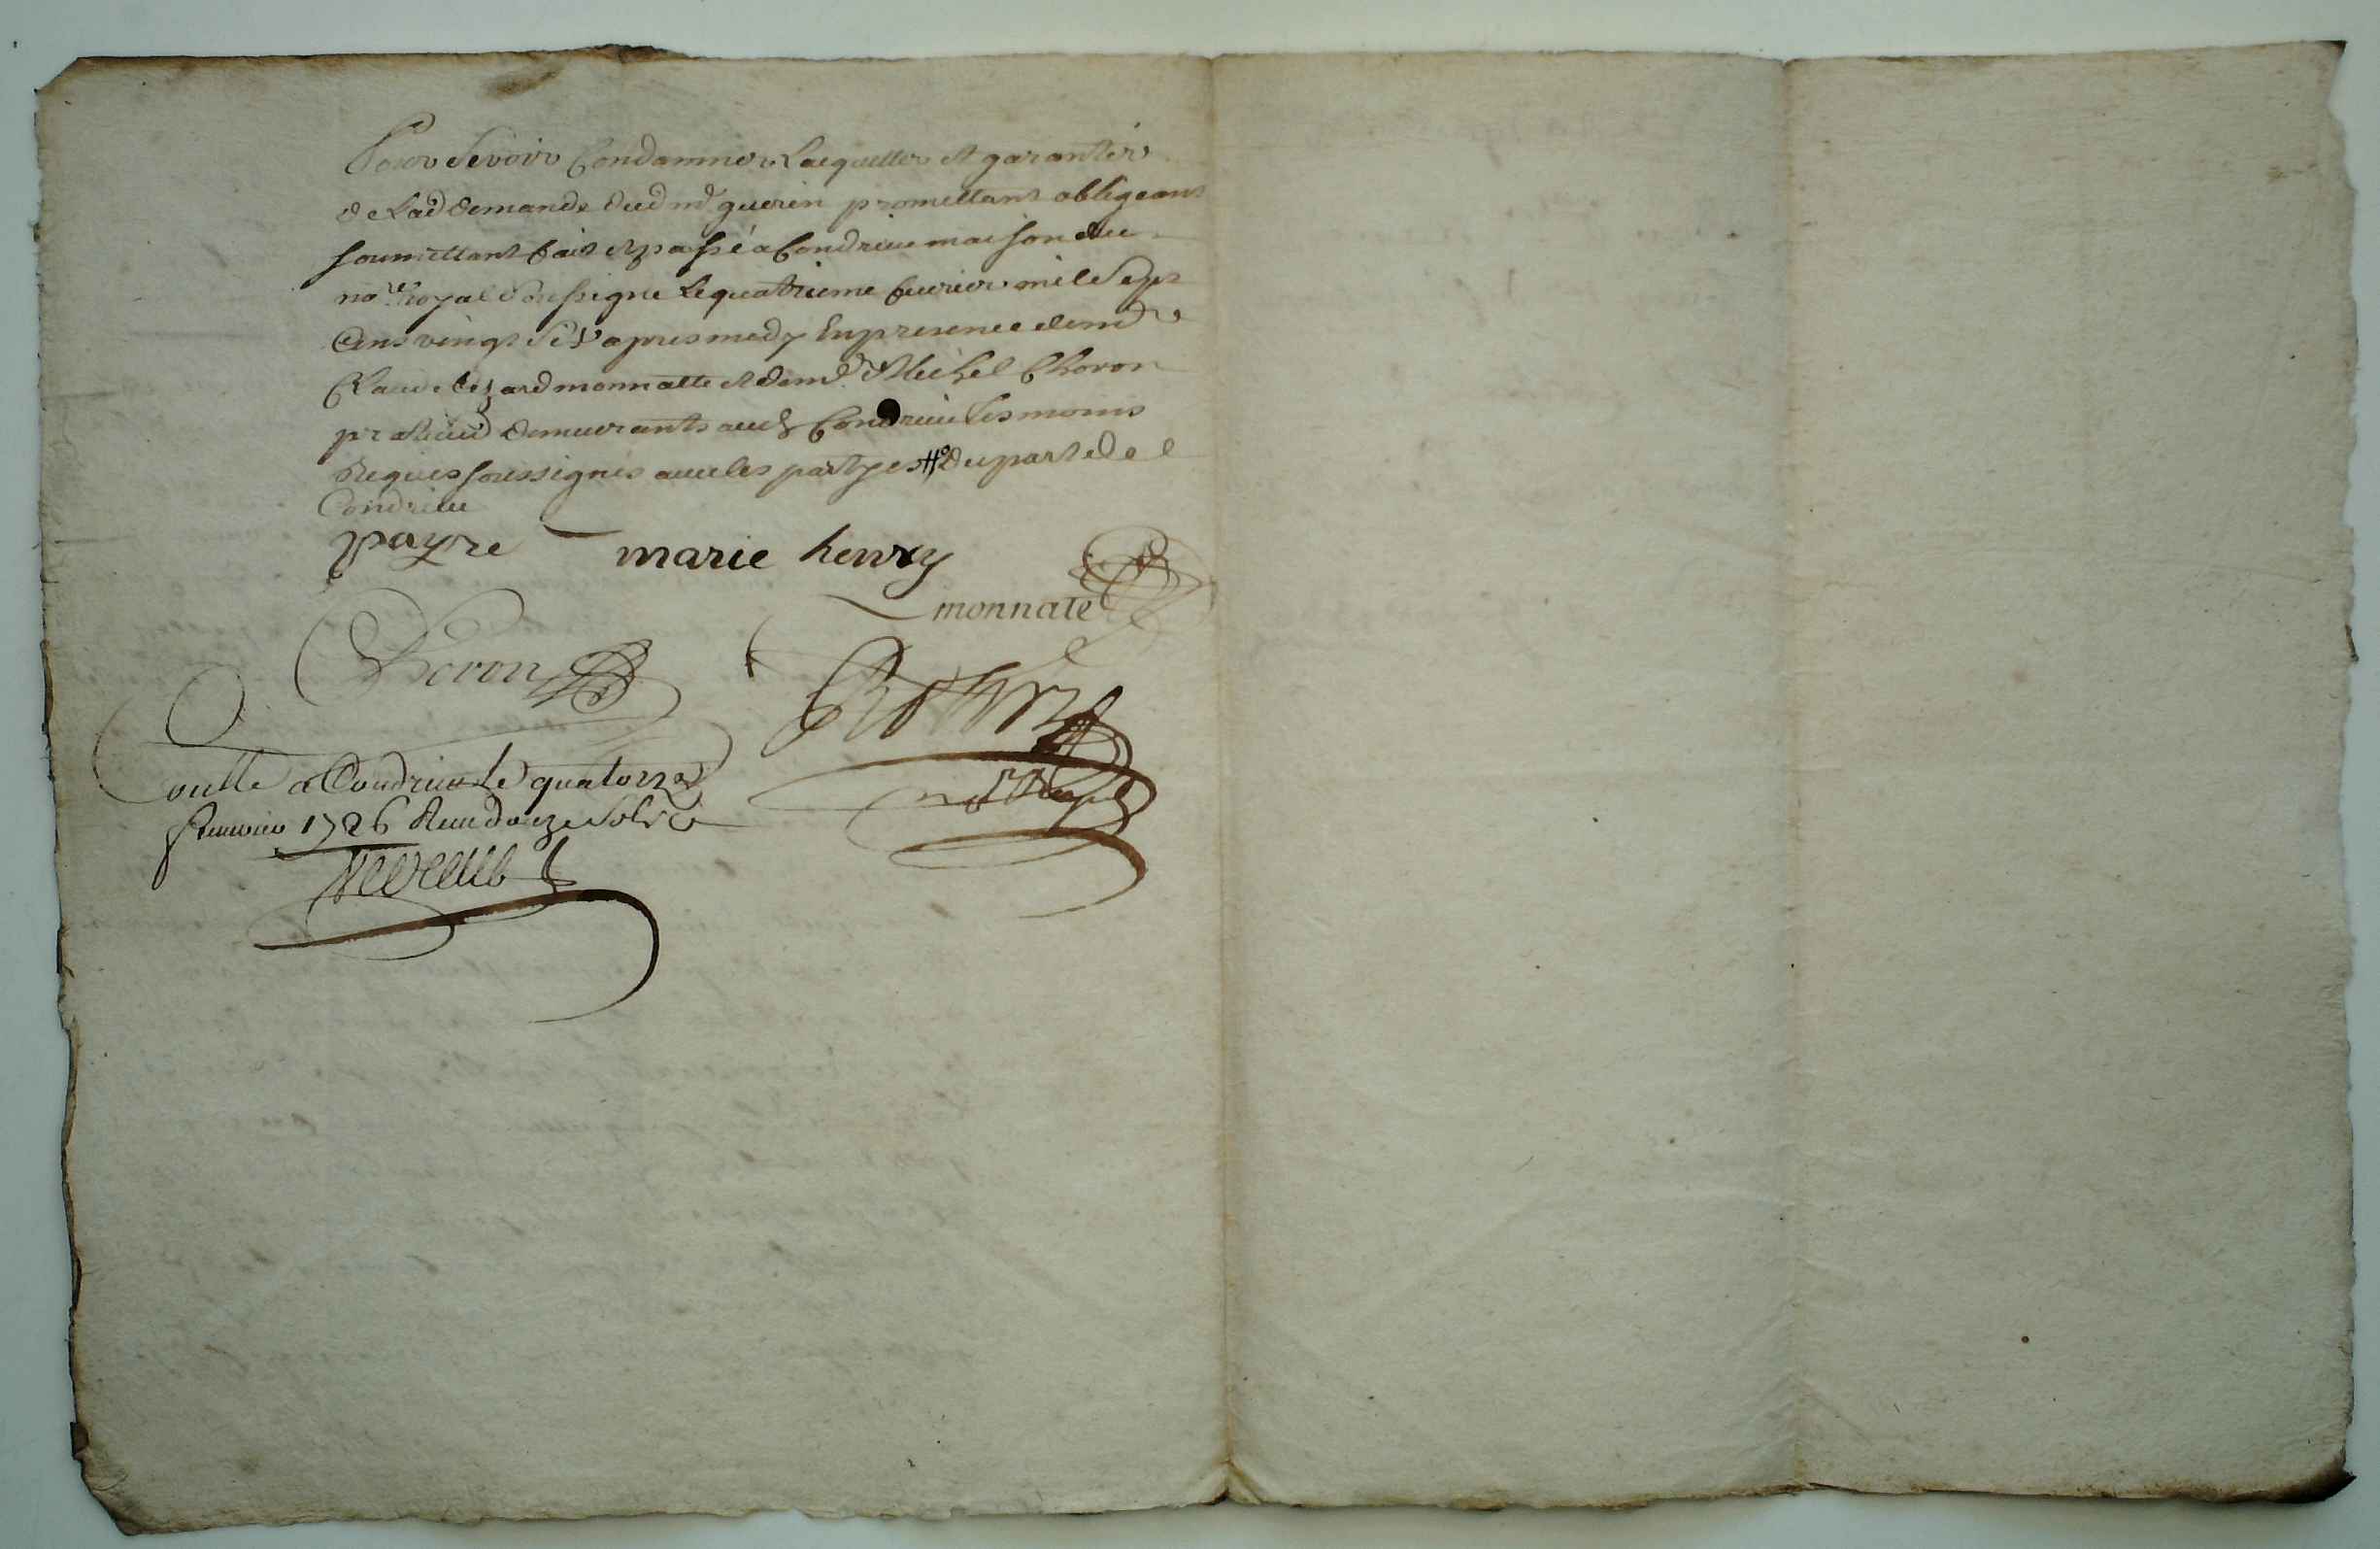 Pour Sevoir Condamner Lacquitter et garantir
de Lad demande dud md guerin promettant obligeant
soumettant fait et passé a Condrieu maison du
nore Royal soussigné le quatrieme fevrier mil Sept
Cens vingt Six apres medy En presence de md
Claude monnatte et de md Michel Choron
demeurants aud Condrieu tesmoins
Requis soussignés avec les partyes # du part de
Condrieu
payre marie henry
monnate
Choron
Conllé a Condrieu Le quatorze
fevrier 1726 Receu douze sols